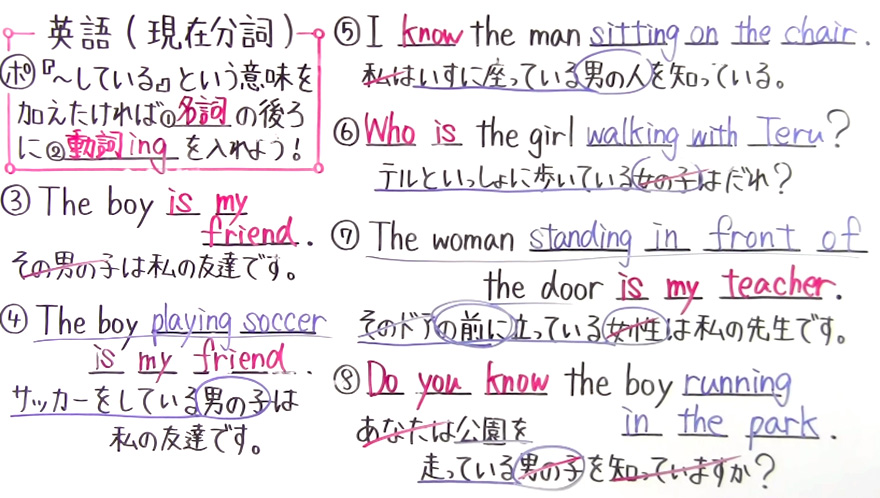 英語(現在分詞)
ポ『~している』という意味を
加えたければ①名詞の後ろ
に②動詞ingを入れよう!
③ The boy is my
friend.
その男の子は私の友達です。
④ The boy playing soccer
is my friend.
サッカーをしている男の子は
私の友達です。
⑤ I know the man sitting on the chair.
私はいすに座っている男の人を知っている。
⑥ Who is the girl walking with Teru?
テルといっしょに歩いている女の子はだれ?
⑦ The woman standing in front of
the door is my teacher.
そのドアの前に立っている女性は私の先生です。
⑧ Do you know the boy running
in the park.
あなたは公園を
走っている男の子を知っていますか?